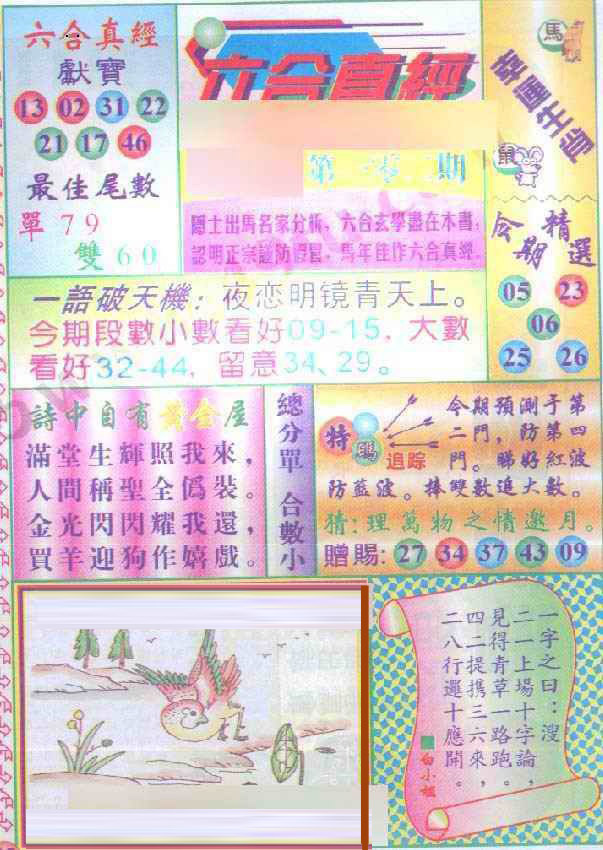 六合真經
獻寶
13 02 31 22
21 17 46
最佳尾數
單 7 9
雙 6 0
六合真經
第一零二期
隱士出馬名家分析，六合玄學盡在本書，
認明正宗謹防假冒，馬年佳作六合真經。
幸運生肖
馬
鼠
今期精選
05 23
06
25 26
一語破天機：夜恋明镜青天上。
今期段數小數看好09-15，大數
看好32-44，留意34、29。
詩中自有黃金屋
滿堂生輝照我來，
人間稱聖全僞裝。
金光閃閃耀我還，
買羊迎狗作嬉戲。
總分單 合數小
特碼
追踪
今期預測于第
二門，防第四
門。睇好紅波
防藍波。捧雙數追大數。
猜：理萬物之情邀月。
贈賜：27 34 37 43 09
一字之曰：溲
二一上場十字論，
見得青草一路跑。
四二提携三六來，
二八行運十應開。
白小姐